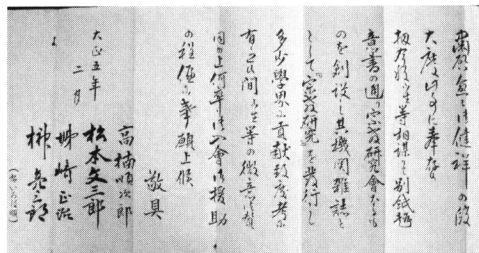 粛啓益々御健祥の段
大慶此事に奉存
小生等相謀り別紙趣
意書の通り宗教研究會なるも
のを創設し其機関雑誌と
して『宗教研究』を發行し
多少學界に貢献致度考に
有之候間小生等の微意御賛
同の上何卒御入會御援助
の程偏に奉願上候
敬具
大正五年
二月
高楠順次郎
松本文三郎
姉崎正治
榊亮三郎